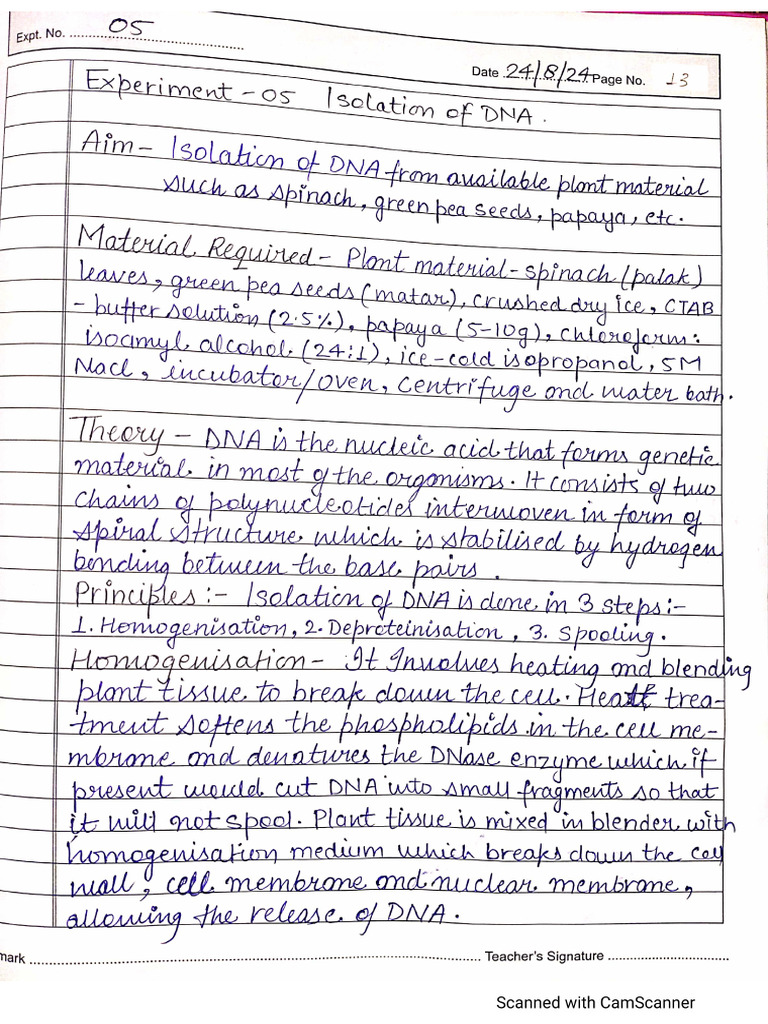 Expt. No. 05
Date 24/8/24 Page No. 13
Experiment - 05 Isolation of DNA.
Aim - Isolation of DNA from available plant material
such as spinach, green pea seeds, papaya, etc.
Material Required - Plant material - spinach (palak)
leaves, green pea seeds (matar), crushed dry ice, CTAB
- buffer solution (2.5%), papaya (5-10g), chloroform:
isoamyl alcohol (24:1), ice-cold isopropanol, 5M
Nacl, incubator/oven, centrifuge and water bath.
Theory - DNA is the nucleic acid that forms genetic
material in most of the organisms. It consists of two
chains of polynucleotides interwoven in form of
spiral structure which is stabilised by hydrogen
bonding between the base pairs.
Principles :- Isolation of DNA is done in 3 steps:-
1. Homogenisation, 2. Deproteinisation, 3. Spooling.
Homogenisation - It Involves heating and blending
plant tissue to break down the cell. Heat trea-
tment softens the phospholipids in the cell me-
mbrane and denatures the DNase enzyme which if
present would cut DNA into small fragments so that
it will not spool. Plant tissue is mixed in blender with
homogenisation medium which breaks down the cell
wall, cell membrane and nuclear membrane,
allowing the release of DNA.
mark Teacher's Signature
Scanned with CamScanner